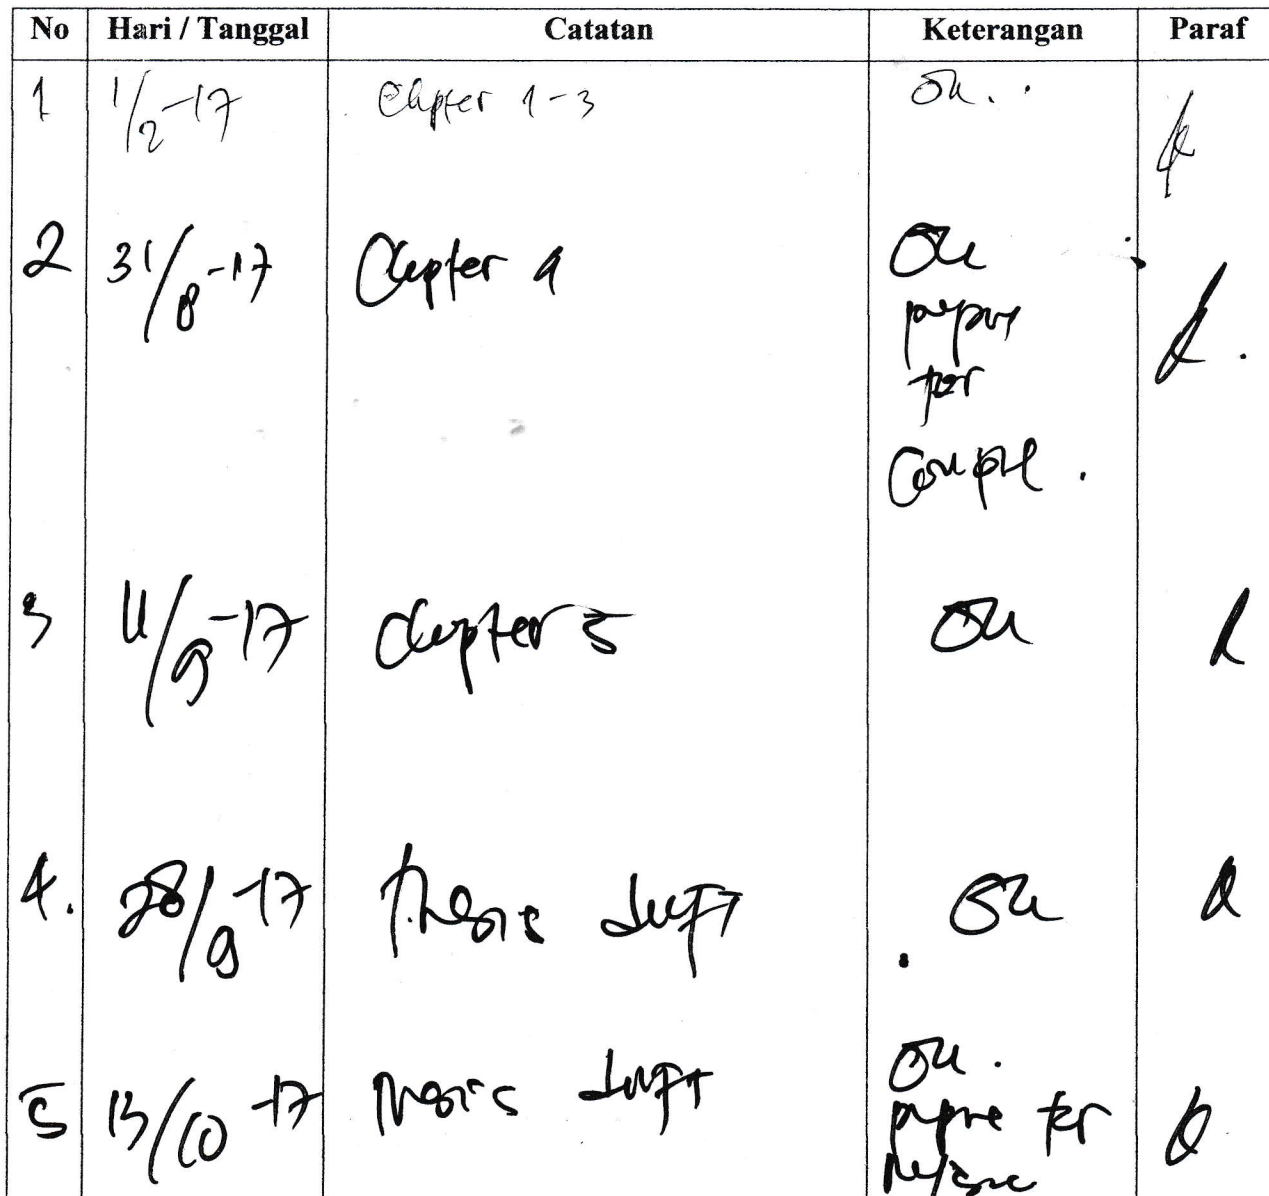 No Hari / Tanggal Catatan Keterangan Paraf
1 1/2-17 Chapter 1-3 Ok.
2 31/8-17 Chapter 4 Ok
prepare
for
3 11/9-17 Chapter 5 Ok
4. 28/9-17 Thesis draft Ok
5 13/10-17 Thesis draft Ok.
prepare for